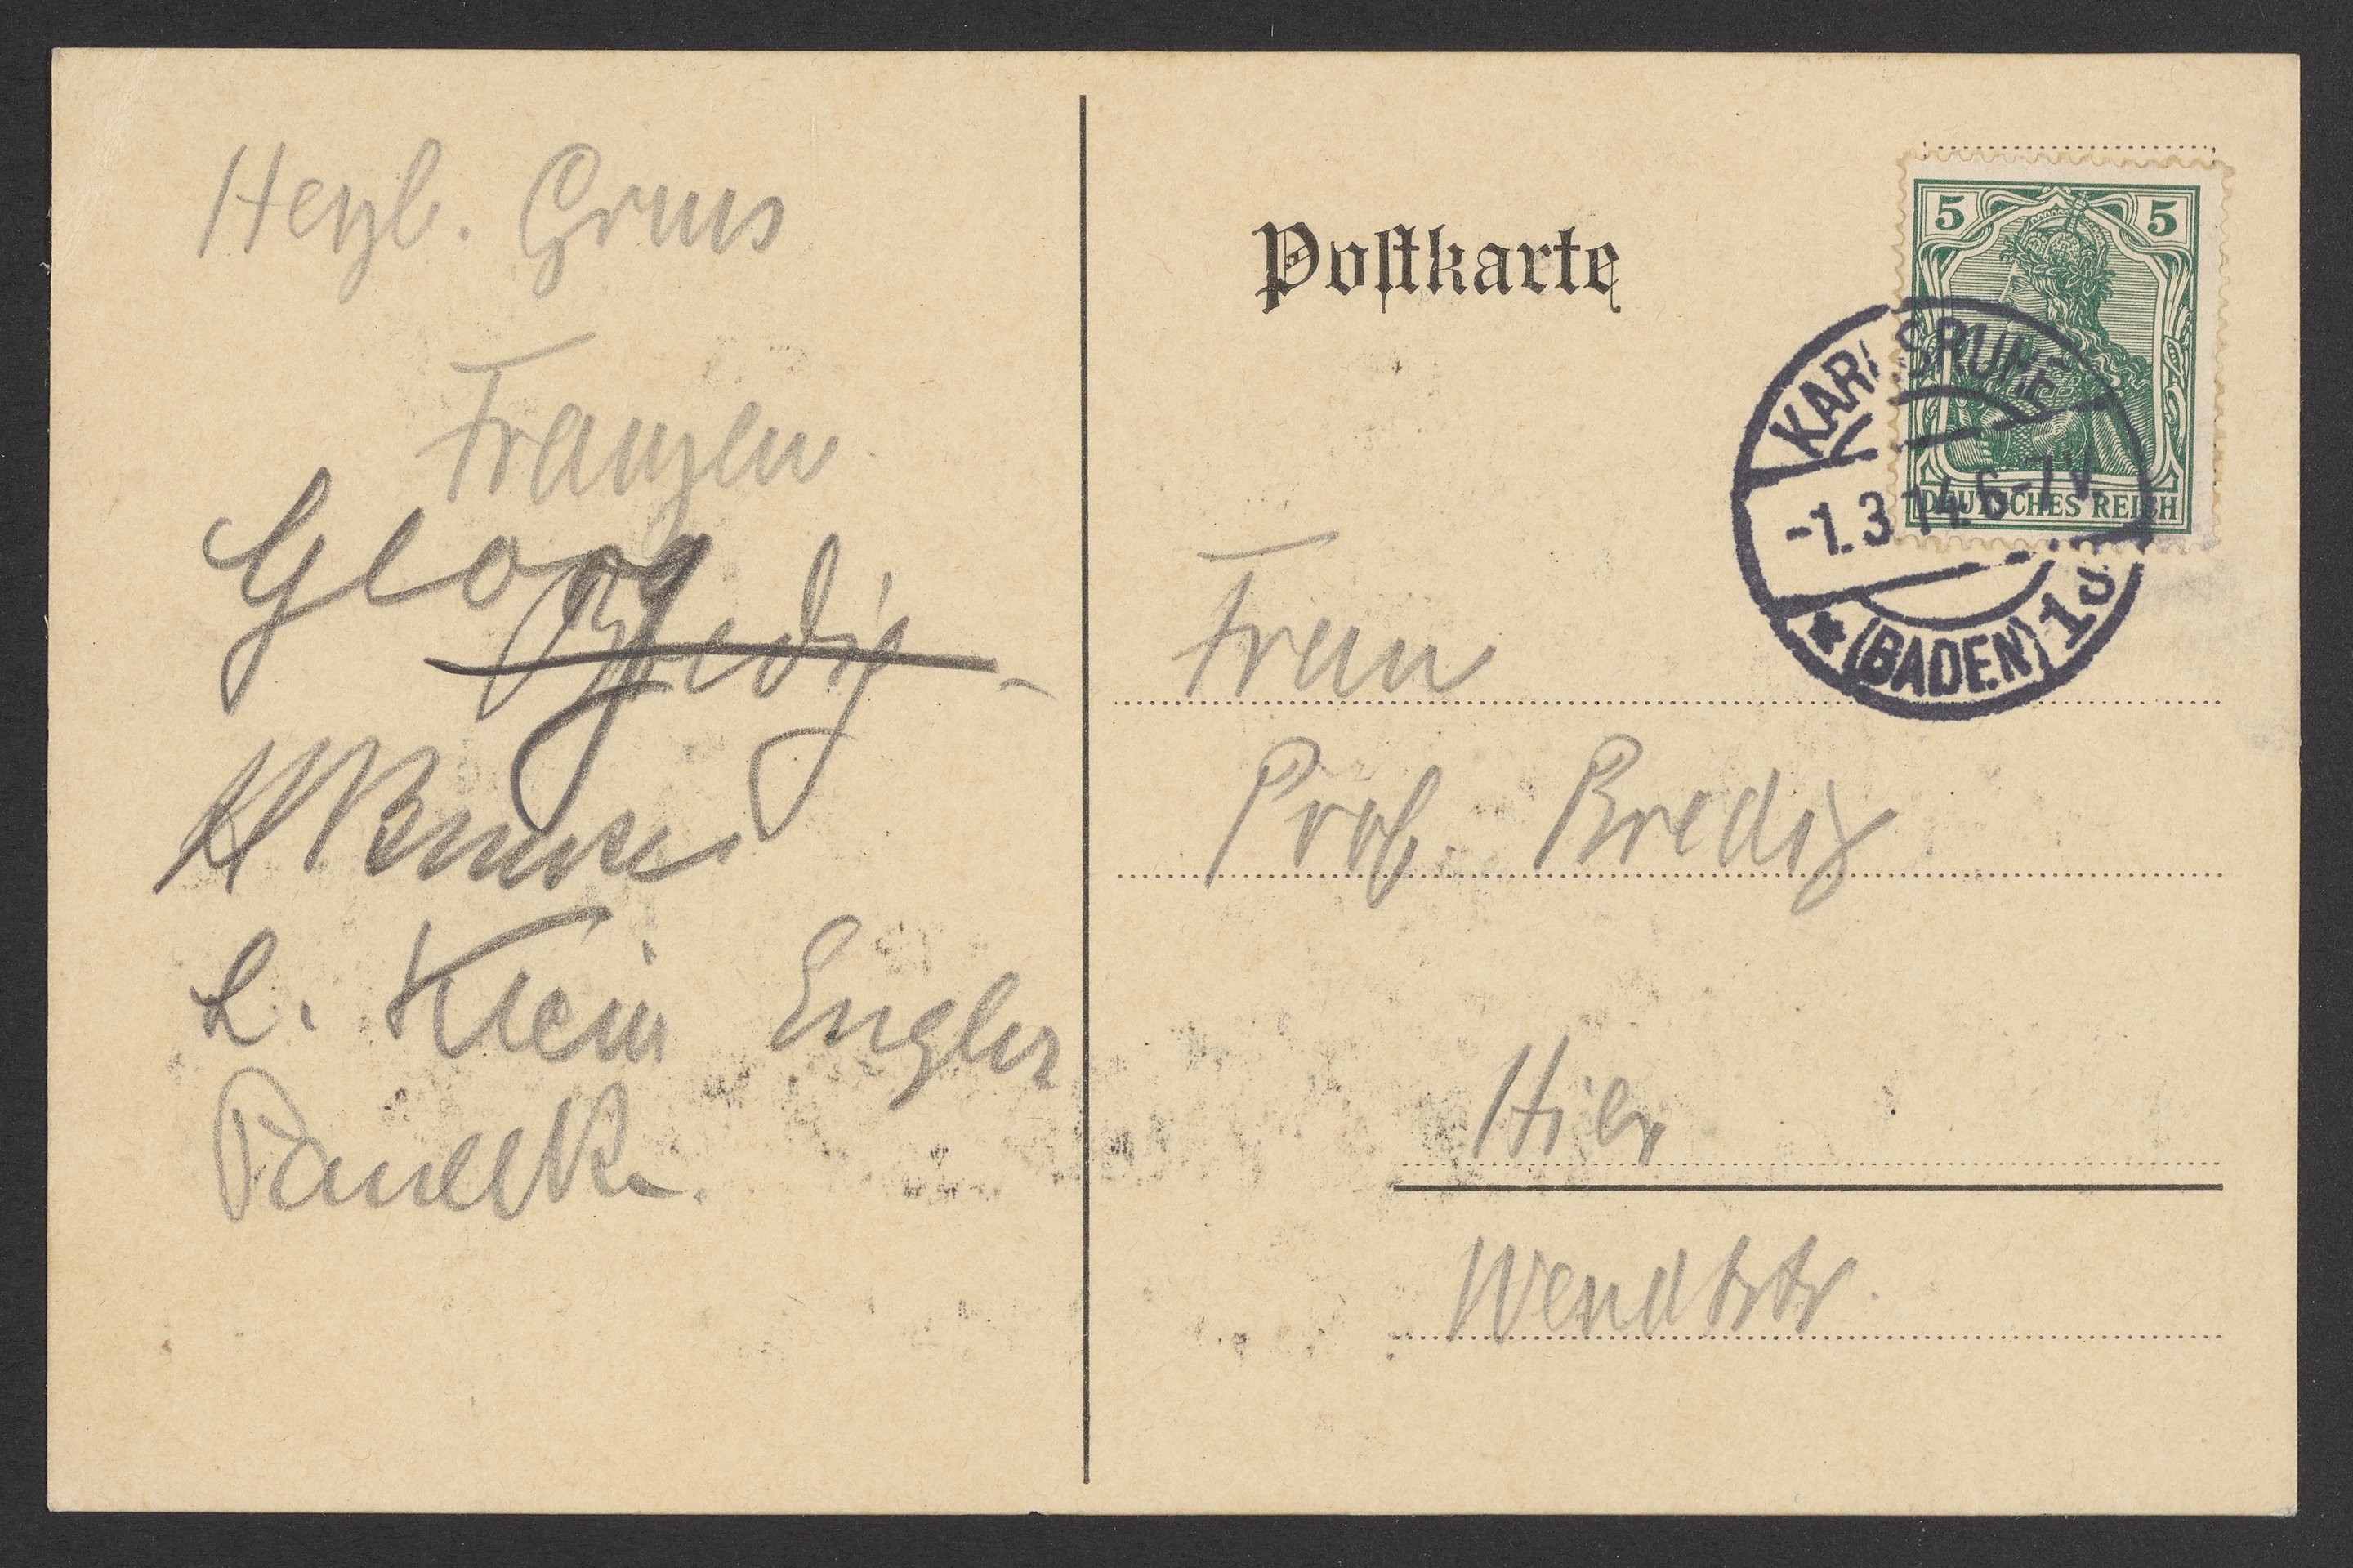 Herzl. Gruss
Franzen
Georg
Bredig
L. Klein Engler
Postkarte
5 5
DEUTSCHES REICH
KARLSRUHE
-1.3.14.6-7V
* (BADEN) 1
Frau
Prof. Bredig
Hier
Wendtstr.